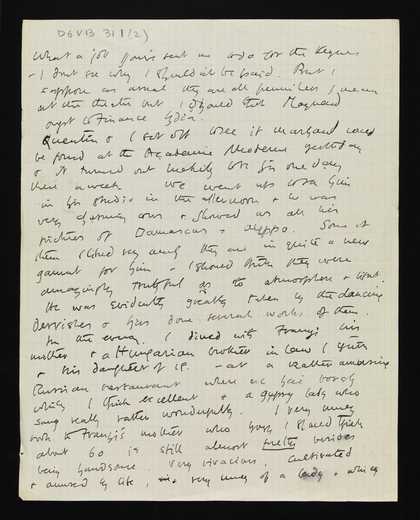 DGVB 31 (1/2)
What a job you've sent us to do for the Keynes
- I don't see why I should not be paid. But I
suppose as usual they are all penniless I mean
at the theatre but I should think Maynard
ought to finance
Quentin & I set off to see if Marchand could
be found at the Académie Moderne yesterday
& it turned out luckily to be his one day
there a week. We went up with him
to his studio in the afternoon & he was
very charming & showed us all his
pictures of Damascus & Aleppo. Some of
them I liked very much they are in quite a new
gamut for him & I should think they were
amazingly truthful as to atmosphere & light.
He was evidently greatly taken by the dancing
dervishes & has done several works of them.
In the evening I dined with his
mother & a Hungarian brother in law & sister
& his daughter of 18 - at a rather amusing
Russian restaurant where we had borsch
which I think excellent & a gypsy lady who
sang really rather wonderfully. I very much
took to mother who must I should think
about 60 is still almost pretty besides
being handsome very vivacious, cultivated
& amused by life, very much of a lady & which